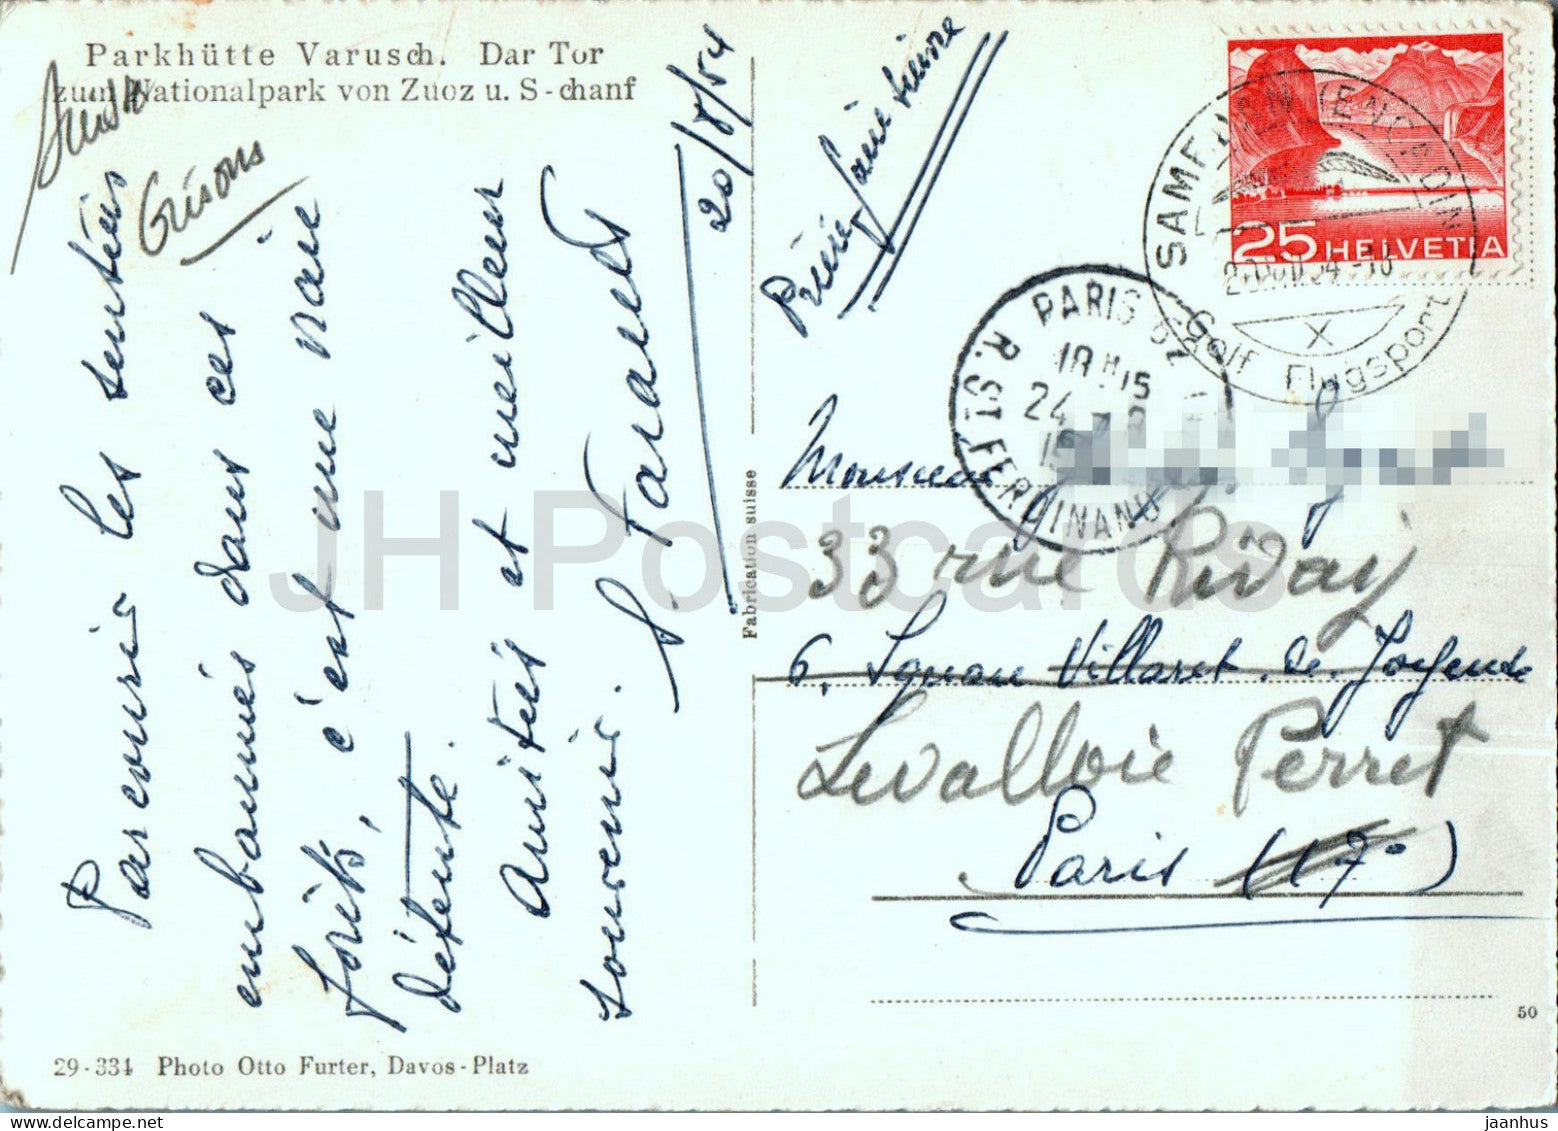 Parkhütte Varusch. Dar Tor
zum Nationalpark von Zuoz u. S-chanf
Suisse
Grisons
Parcourir les sentiers
embaumés dans ces
forêts, c'est une vraie
détente.
Amitiés et meilleur
souvenir.
20/8/54
Prière faire suivre
Fabrication suisse
25 HELVETIA
SAMEDEN (ENGADIN)
Golf Flugsport
PARIS
18H15
24
R. ST FERDINAND
Monsieur
33 rue Rivay
6, Square Villaret de Joyeuse
Levalloie Perret
Paris (17e)
50
29-334 Photo Otto Furter, Davos-Platz
JH Postcards
jaanhus